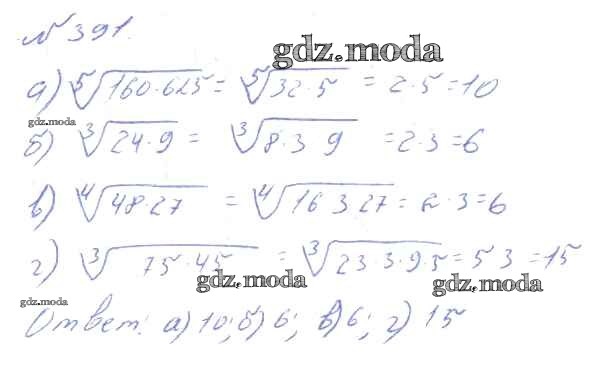 № 391.
gdz.moda
а) ⁵√160·625 = ⁵√32·5 = 2·5 = 10
gdz.moda
б) ³√24·9 = ³√8·3 9 = 2·3 = 6
в) ⁴√48·27 = ⁴√16 3 27 = 2·3 = 6
г) ³√75·45 = ³√23 3·9·5 = 5 3 = 15
gdz.moda gdz.moda
gdz.moda
Ответ: а) 10; б) 6; в) 6; г) 15